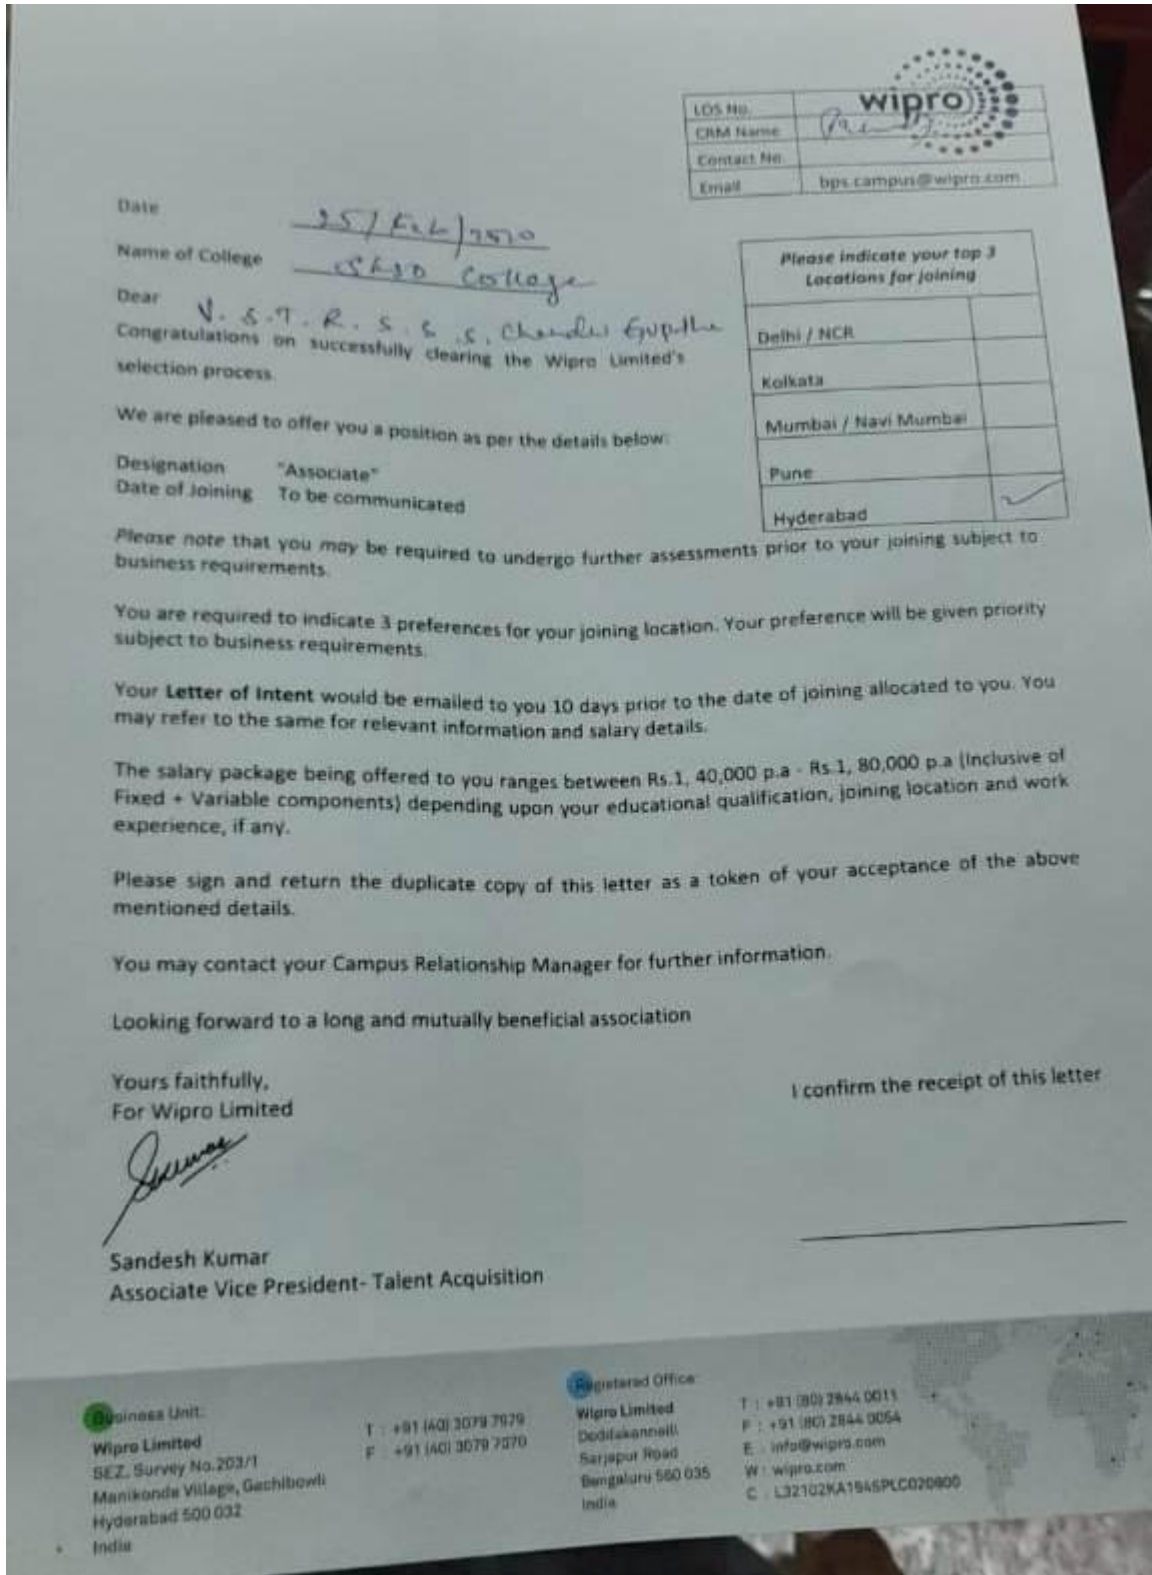 wipro
LOS No.
CRM Name
Contact No.
Email bps.campus@wipro.com
Date 25/Feb/2020
Name of College College
Dear V. S. T. R. S. S. S. Chandu Guptha
Please indicate your top 3
Locations for joining
Delhi / NCR
Kolkata
Mumbai / Navi Mumbai
Pune
Hyderabad
Congratulations on successfully clearing the Wipro Limited's
selection process.
We are pleased to offer you a position as per the details below:
Designation "Associate"
Date of Joining To be communicated
Please note that you may be required to undergo further assessments prior to your joining subject to
business requirements.
You are required to indicate 3 preferences for your joining location. Your preference will be given priority
subject to business requirements.
Your Letter of Intent would be emailed to you 10 days prior to the date of joining allocated to you. You
may refer to the same for relevant information and salary details.
The salary package being offered to you ranges between Rs.1, 40,000 p.a - Rs.1, 80,000 p.a (Inclusive of
Fixed + Variable components) depending upon your educational qualification, joining location and work
experience, if any.
Please sign and return the duplicate copy of this letter as a token of your acceptance of the above
mentioned details.
You may contact your Campus Relationship Manager for further information.
Looking forward to a long and mutually beneficial association
Yours faithfully,
For Wipro Limited
I confirm the receipt of this letter
Sandesh Kumar
Associate Vice President- Talent Acquisition
Business Unit:
Wipro Limited
SEZ, Survey No.203/1
Manikonda Village, Gachibowli
Hyderabad 500 032
India
T : +91 (40) 3079 7979
F : +91 (40) 3079 7070
Registered Office:
Wipro Limited
Doddakannelli
Sarjapur Road
Bengaluru 560 035
India
T : +91 (80) 2844 0011
F : +91 (80) 2844 0054
E : info@wipro.com
W : wipro.com
C : L32102KA1945PLC020800